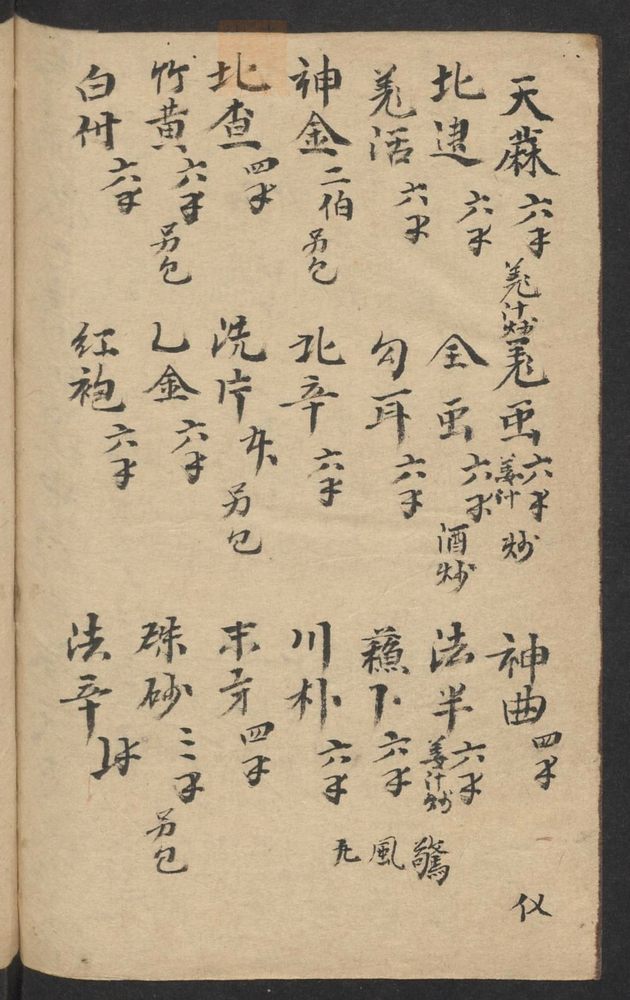 天蔴 六才 羌汁炒 羌虫 六才 姜汁炒 神曲 四才
北建 六才 全虫 六才 酒炒 法半 六才 姜汁炒
羌活 六才 勾耳 六才 蘓卜 六才
神金 二伯 另包 北辛 六才 川朴 六才
北查 四才 洗片 另包 末牙 四才
竹黄 六才 另包 乚金 六才 硃砂 三才 另包
白付 六才 红袍 六才 法辛
驚風九